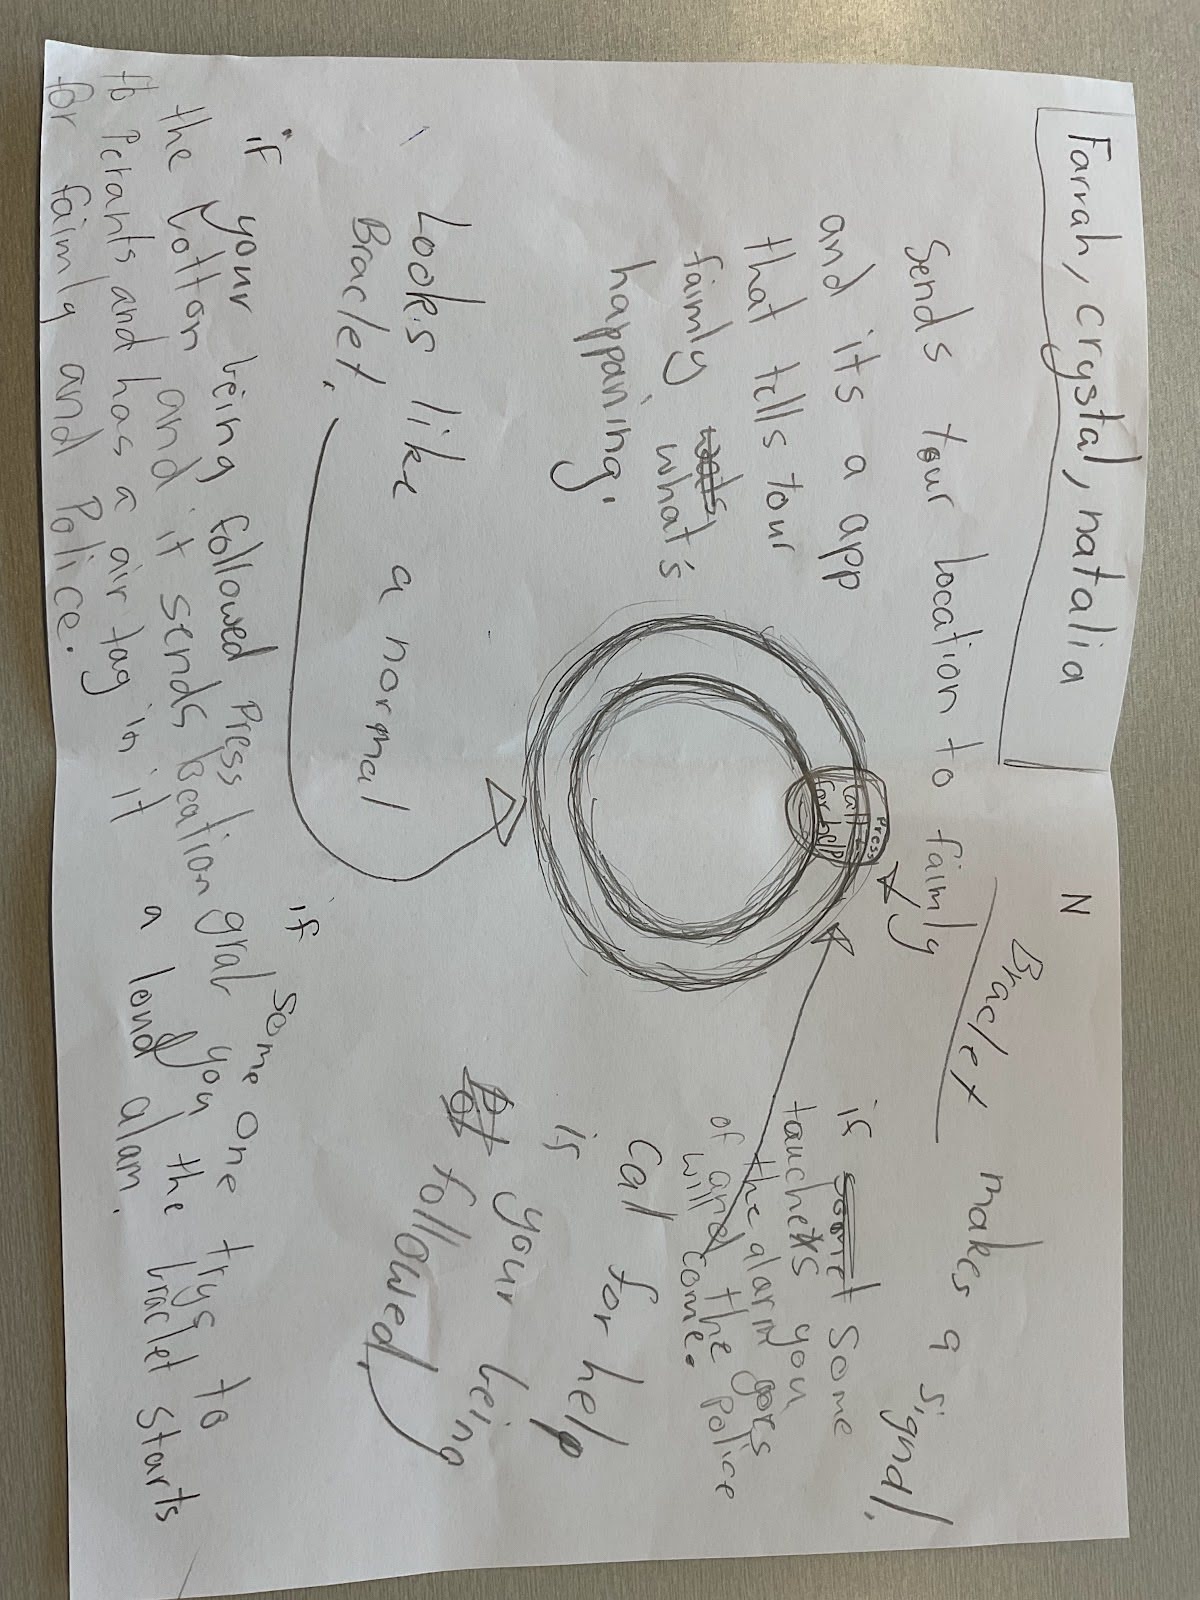 Farrah, crystal, natalia
N
Braclet
Sends tour location to faimly
and its a app
that tells tour
faimly what's
happaning.
makes a signal.
is some
tauches you
the alarm goes
of and the Police
will come.
Press
Call
for help
Looks like a normal
Braclet.
Cal for help
is your being
followed.
if your being followed Press
the botton and it sends location
to Perants and has a air tag in it
for faimly and Police.
if some one trys to
grab you the braclet starts
a loud alam.